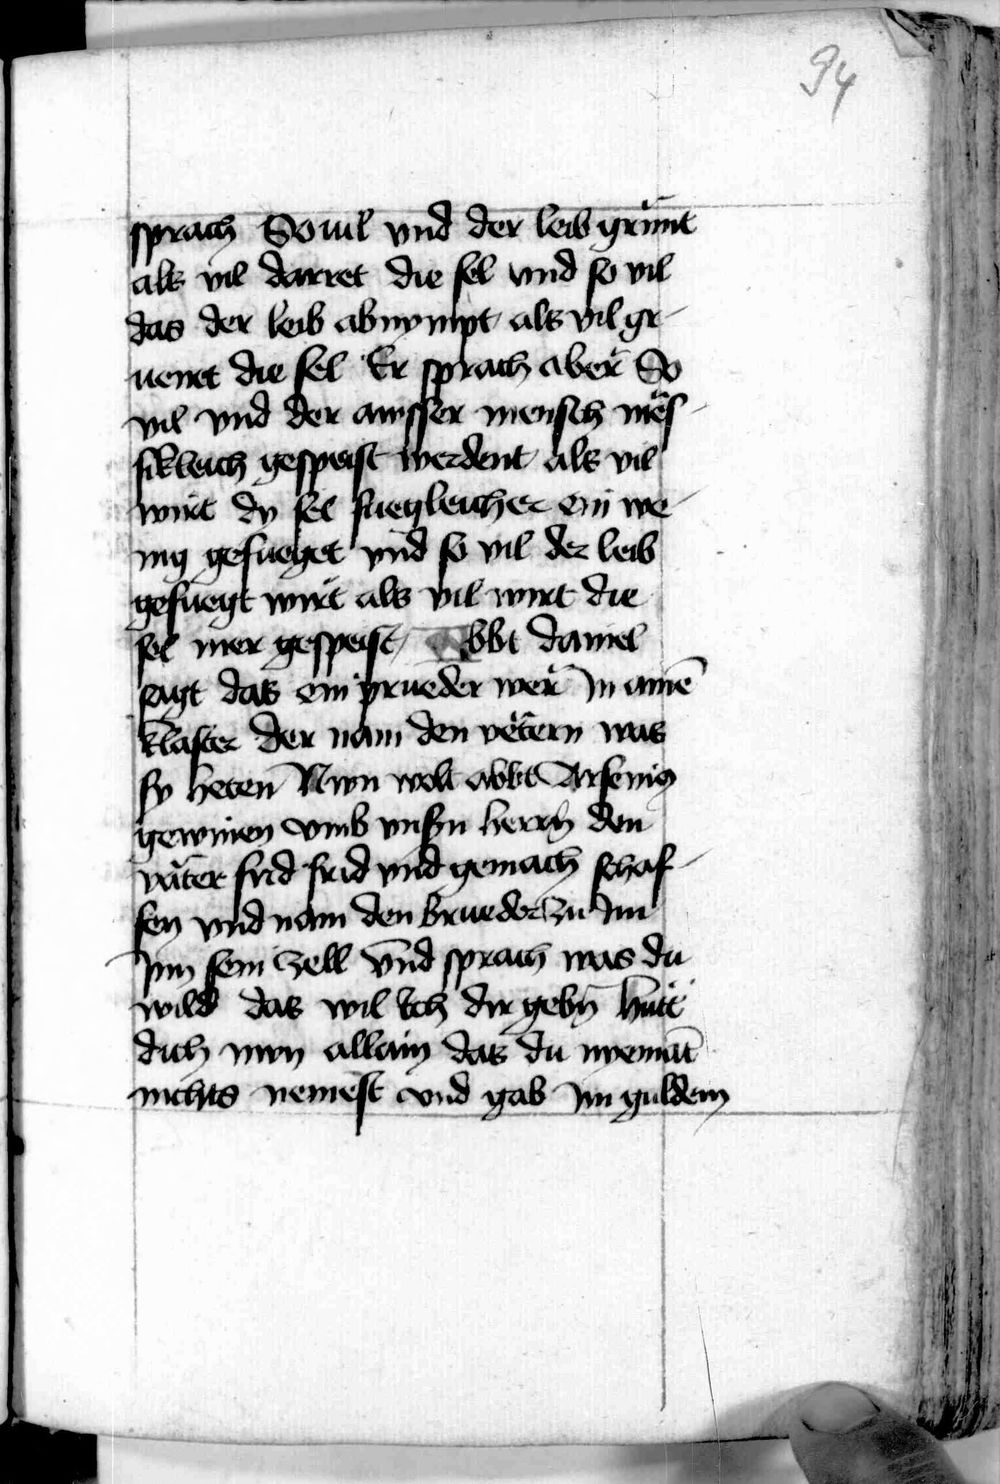 94
sprach So uil vnd der leib grünt
als vil darret die sel vnd so vil
das der leib abnympt als vil gr-
uenet die sel Er sprach aber So
vil vnd der ausser mensch mës-
sikleich gespeist werdent als vil
wirt dy sel fuegleicher ein we-
nig gefueget vnd so vil der leib
gefuegt wirt als vil wirt die
sel mer gespeist Abbt daniel
sagt das ein prueder wer In aine᷑
klaster der nam den vëtern was
sy heten Nwn wolt abbt Arsenig
gewinen vmb vnsn herrn den
väter frid vnd gemach schaf-
fen vnd nam den brueder zu Im
Inn sein zell vnd sprach was du
wild das wil Ich dir gebn̄ hüt
dich nwn allain das du nyemāt
nichts nemest vnd gab Im guldem